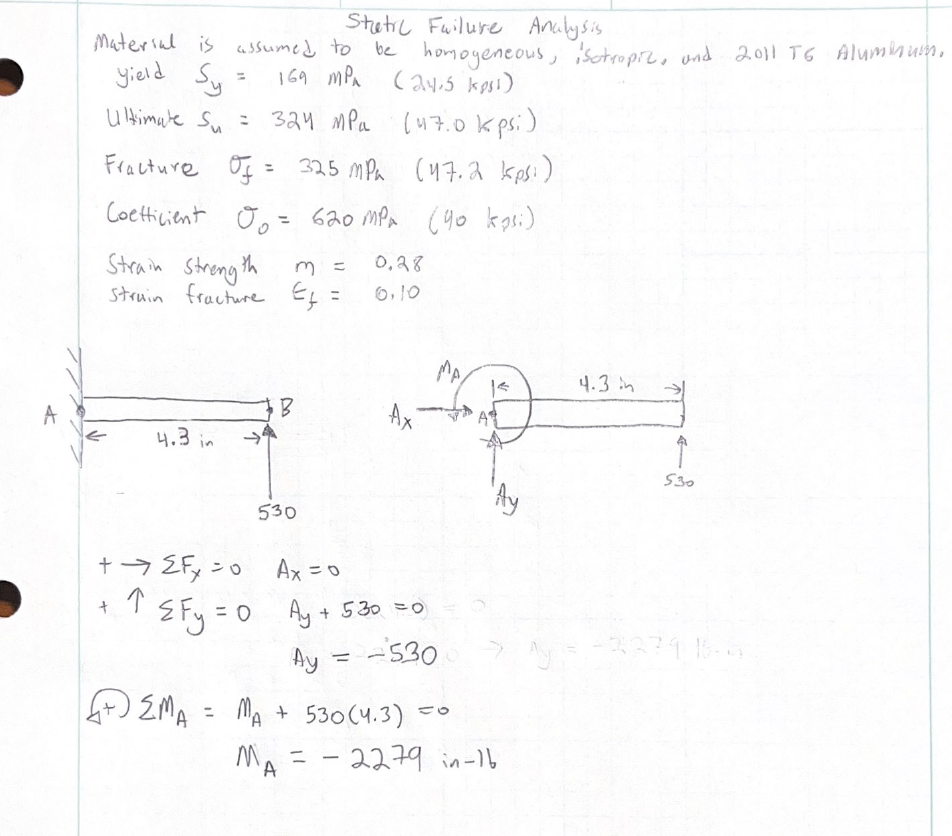 Static Failure Analysis
Material is assumed to be homogeneous, isotropic, and 2011 T6 Aluminum.
yield Sy = 169 MPa (24.5 kpsi)
Ultimate Su = 324 MPa (47.0 kpsi)
Fracture σf = 325 MPa (47.2 kpsi)
Coefficient σo = 620 MPa (90 kpsi)
Strain strength m = 0.28
strain fracture Ef = 0.10
A B
4.3 in
530
MA
Ax A 4.3 in
530
Ay
+ → ΣFx = 0 Ax = 0
+ ↑ ΣFy = 0 Ay + 530 = 0
Ay = -530
→ Ay = -2279 lb-in
+ ΣMA = MA + 530(4.3) = 0
MA = - 2279 in-lb